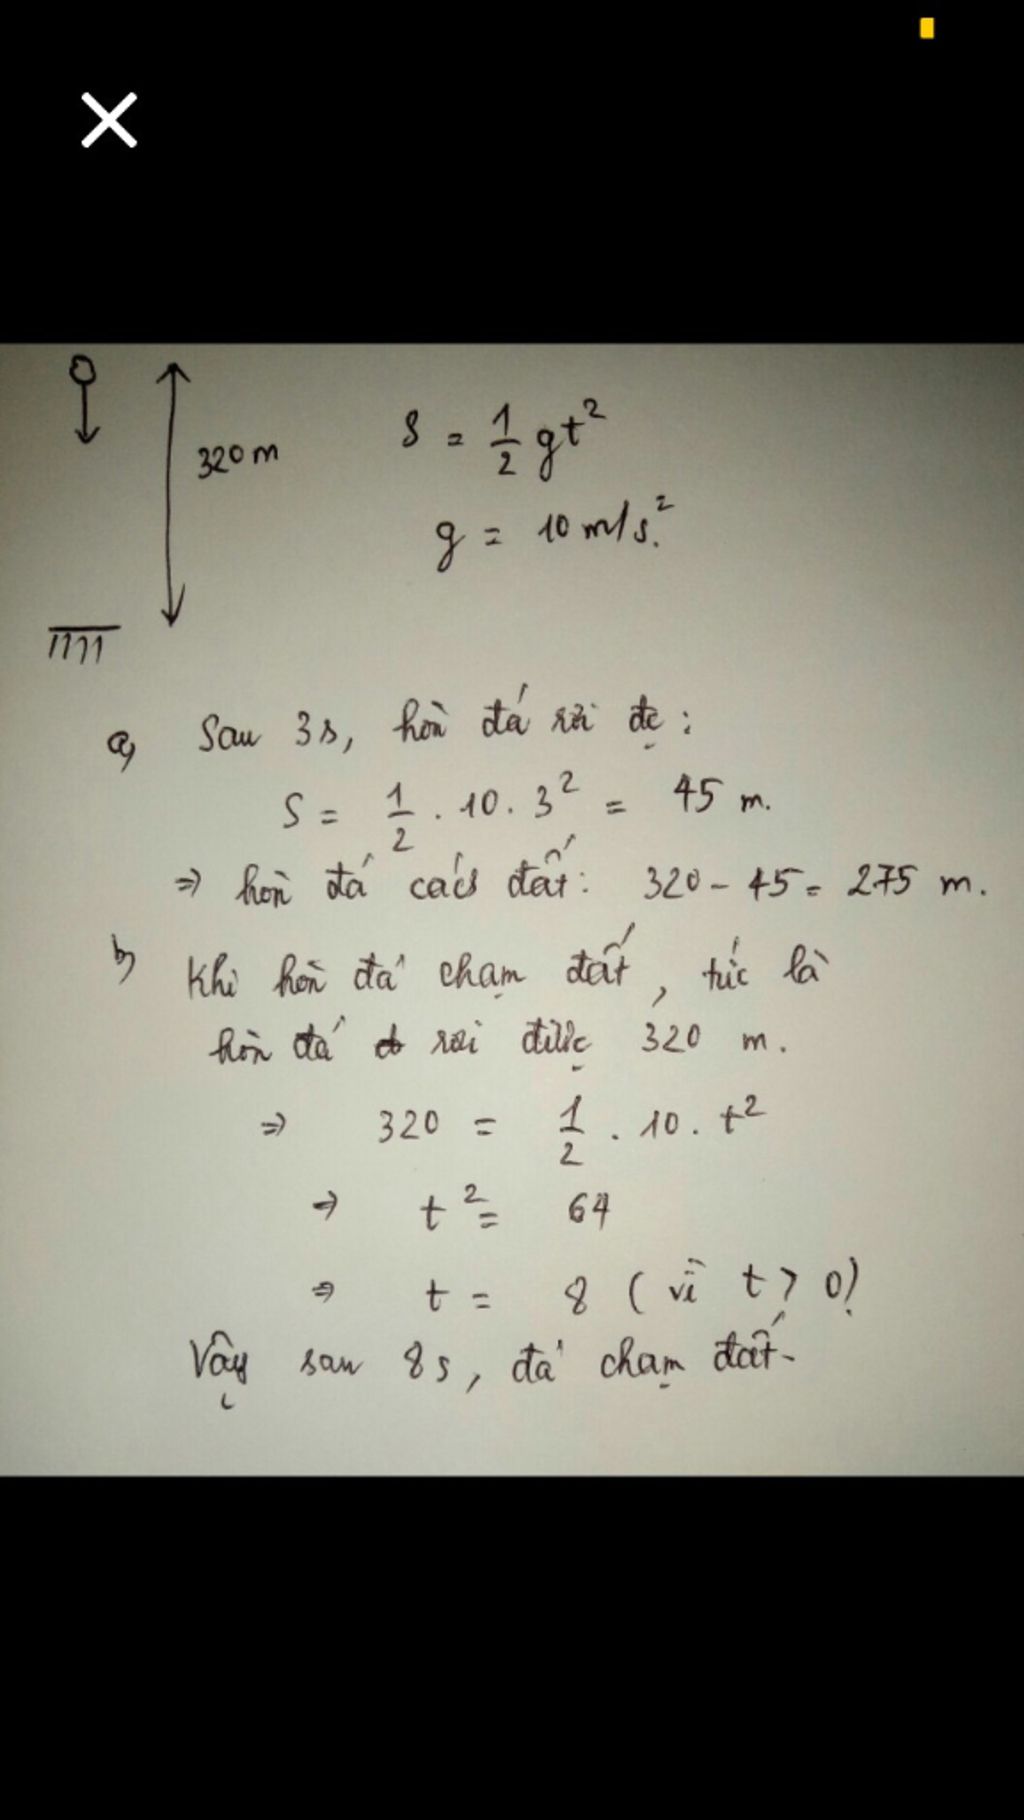 320 m
S = 1/2 gt²
g = 10 m/s².
a, Sau 3s, hòn đá rơi đc :
S = 1/2 . 10 . 3² = 45 m.
⇒ hòn đá cách đất : 320 - 45 = 275 m.
b, Khi hòn đá chạm đất, tức là
hòn đá rơi được 320 m.
⇒ 320 = 1/2 . 10 . t²
⇒ t² = 64
⇒ t = 8 ( vì t > 0)
Vậy sau 8s, đá chạm đất.